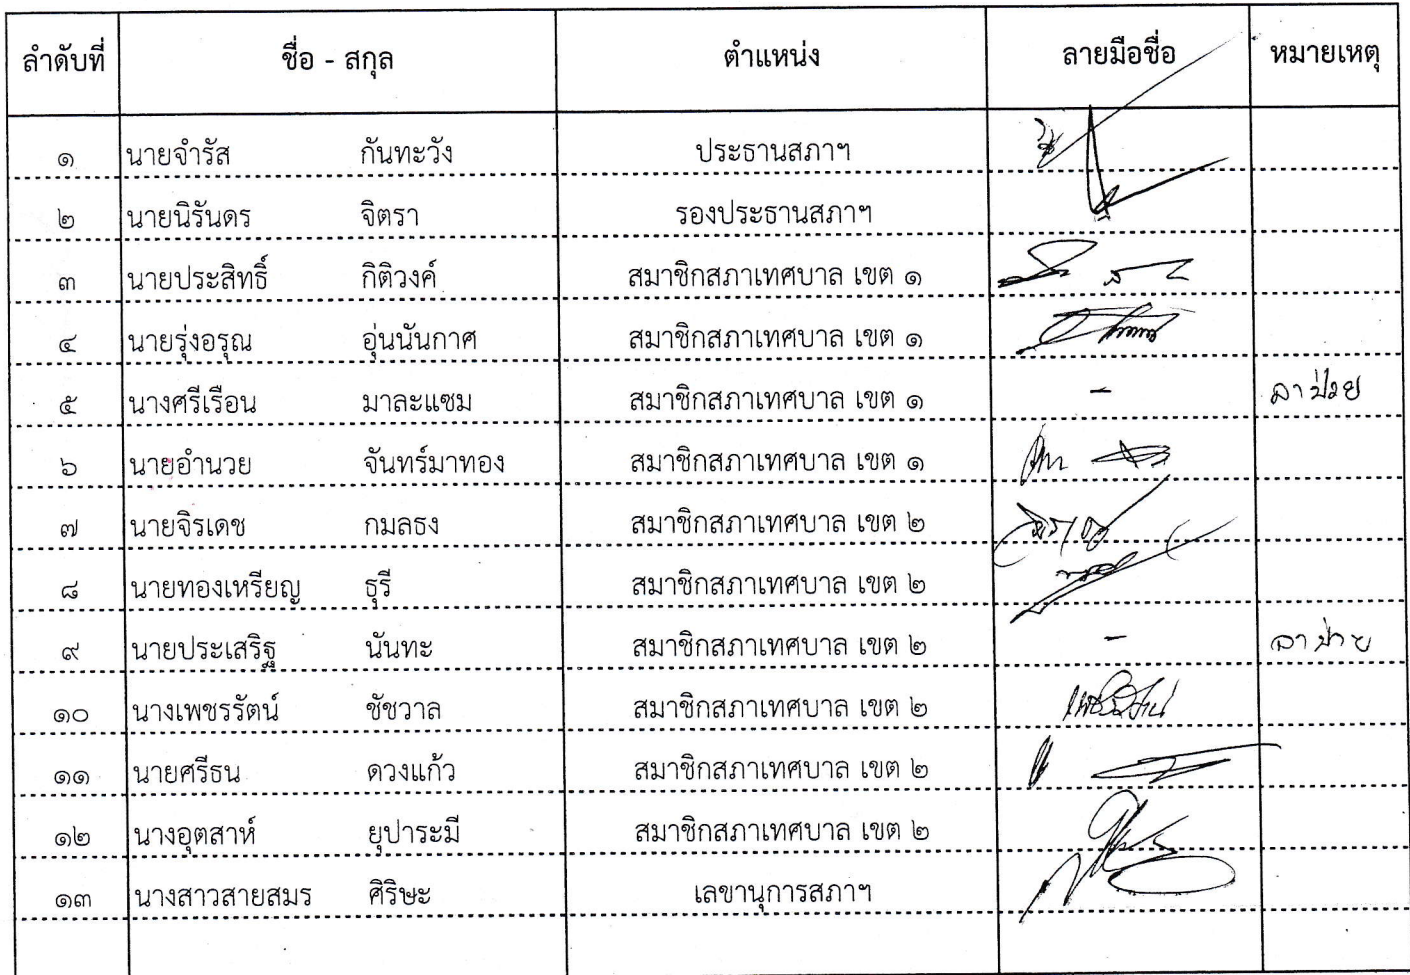 ลำดับที่ ชื่อ - สกุล ตำแหน่ง ลายมือชื่อ หมายเหตุ
๑ นายจำรัส กันทะวัง ประธานสภาฯ
๒ นายนิรันดร จิตรา รองประธานสภาฯ
๓ นายประสิทธิ์ กิติวงค์ สมาชิกสภาเทศบาล เขต ๑
๔ นายรุ่งอรุณ อุ่นนันกาศ สมาชิกสภาเทศบาล เขต ๑
๕ นางศรีเรือน มาละแซม สมาชิกสภาเทศบาล เขต ๑ - ลาป่วย
๖ นายอำนวย จันทร์มาทอง สมาชิกสภาเทศบาล เขต ๑
๗ นายจิรเดช กมลธง สมาชิกสภาเทศบาล เขต ๒
๘ นายทองเหรียญ ธุรี สมาชิกสภาเทศบาล เขต ๒
๙ นายประเสริฐ นันทะ สมาชิกสภาเทศบาล เขต ๒ - ลาป่วย
๑๐ นางเพชรรัตน์ ชัชวาล สมาชิกสภาเทศบาล เขต ๒ เพชรรัตน์
๑๑ นายศรีธน ดวงแก้ว สมาชิกสภาเทศบาล เขต ๒
๑๒ นางอุตสาห์ ยุปาระมี สมาชิกสภาเทศบาล เขต ๒
๑๓ นางสาวสายสมร ศิริษะ เลขานุการสภาฯ